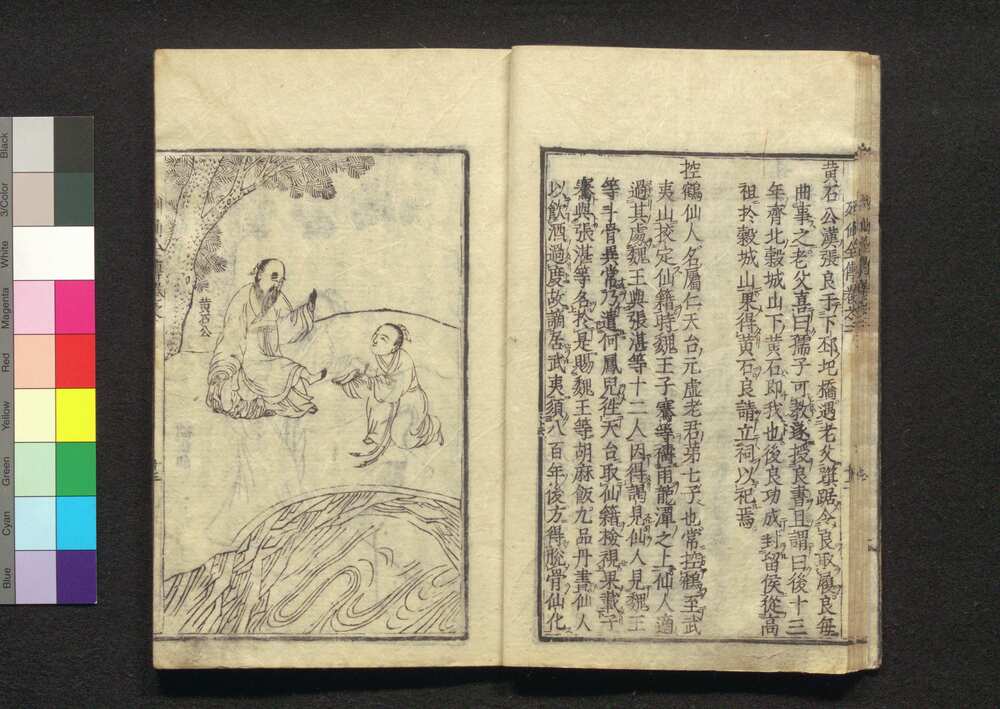 黄石公漢張良于下邳圯橋遇老父踑踞令良取履良毎
曲事之老父喜曰孺子可教遂授良書且謂曰後十三
年齊北穀城山下黄石即我也後良功成封留侯從高
祖於穀城山果得黄石良請立祠以祀焉
控鶴仙人名屬仁天台元虚老君第七子也常控鶴至武
夷山挍定仙籍時魏王子騫等禱雨龍潭之上仙人適
過其處魏王與張湛等十二人因得謁見仙人見魏王
等斗骨異常乃遣何鳳兒徃天台取仙籍檢視果載子
騫與張湛等名於是賜魏王等胡麻飯九品丹書仙人
以飲酒過度故謫居武夷須八百年後方得脱骨仙化
黄石公
Black
3/Color
White
Magenta
Red
Yellow
Green
Cyan
Blue